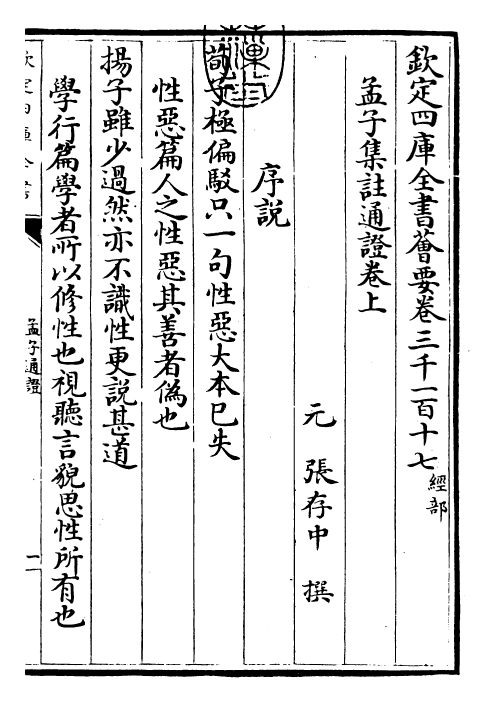 欽定四庫全書薈要卷三千一百十七 經部
孟子集註通證卷上
元 張存中 撰
序說
荀子極偏駁只一句性惡大本已失
性惡篇人之性惡其善者偽也
揚子雖少過然亦不識性更說甚道
學行篇學者所以修性也視聽言貌思性所有也
孟子通證
一